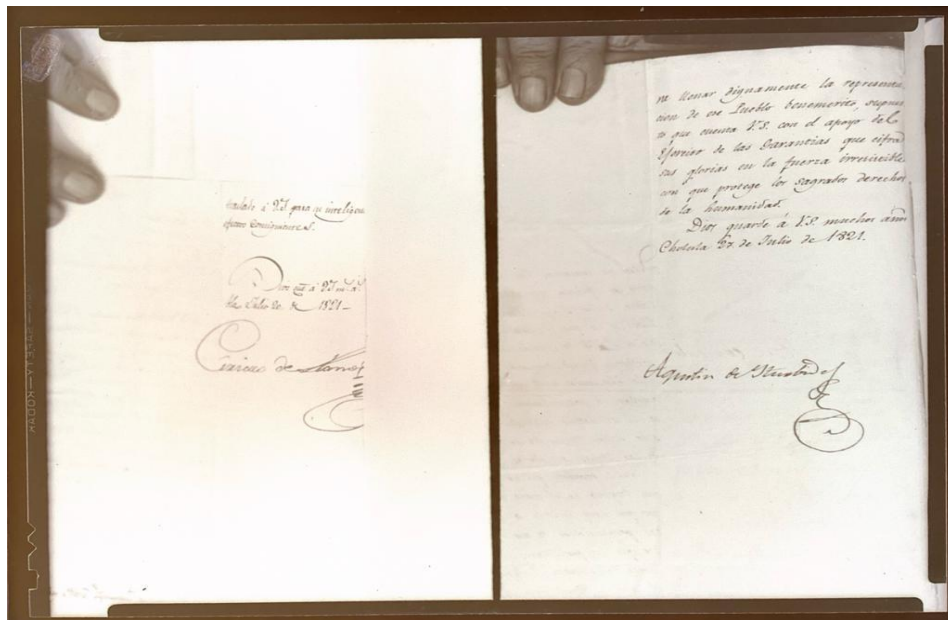 traslado à VS para su inteligen
efectos consiguientes.
Dios gue à VS ms. as.
Julio 20 de 1821
Ciriaco de Llano
ra llenar dignamente la representa
cion de ese Pueblo benemerito, supues
to que cuenta V.S. con el apoyo del
Ejercito de las Garantias que cifra
sus glorias en la fuerza irresistible
con que protege los sagrados derechos
de la humanidad.
Dios guarde á V.S. muchos años
Cholula 27 de Julio de 1821.
Agustin de Iturbide
SAFETY KODAK